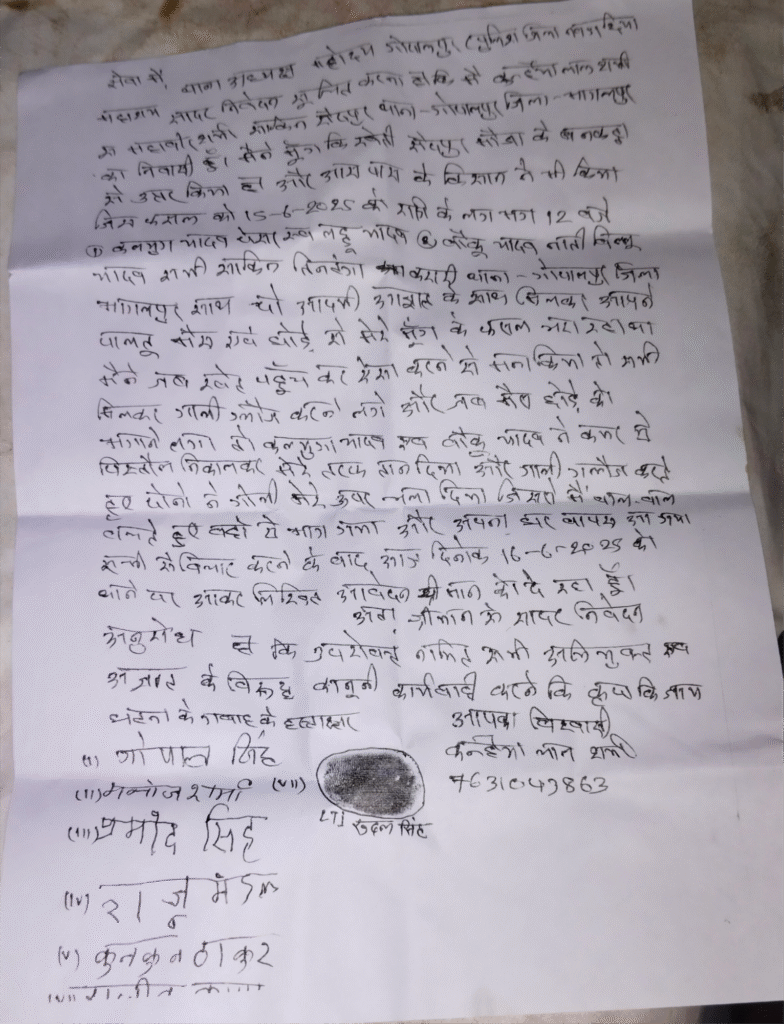 सेवा में, थाना अध्यक्ष महोदय गोपालपुर (पुलिस जिला नवगछिया
महाशय सादर निवेदन सूचित करना है कि मैं कन्हैया लाल शर्मा
सैदपुर थाना-गोपालपुर जिला-भागलपुर
का निवासी हूँ। मैंने मूंग कि खेती सैदपुर मौजा के
और आस पास के किसान ने भी किया
जिस फसल को 15-6-2025 को रात्रि के लग भग 12 बजे
① कलयुग यादव पेसर स्व लड्डू यादव ②
यादव सभी साकिन तिनटंगा थाना-गोपालपुर जिला
भागलपुर साथ दो आदमी अज्ञात के साथ मिलकर अपने
पालतू भैंस एवं घोड़े से मेरे मूंग के फसल चरा रहा था
मैंने जब खेत पहुँच कर ऐसा करने से मना किया तो सभी
मिलकर गाली गलौज करने लगे और जब भैंस घोड़े को
भगाने लगा तो कलयुग यादव यादव ने कमर से
पिस्तौल निकालकर मेरे तरफ तान दिया और गाली गलौज करते
हुए दोनों ने गोली मेरे ऊपर चला दिया जिससे मैं बाल-बाल
बचते हुए वहाँ से भाग गया और अपना घर वापस आ गया
सभी से विचार करने के बाद आज दिनांक 16-6-2025 को
थाने पर आकर लिखित आवेदन श्री मान को दे रहा हूँ।
अतः श्रीमान से सादर निवेदन
अनुरोध है कि उपरोक्त नामित सभी अभियुक्त एवं
अज्ञात के विरूद्ध कानूनी कार्यवाही करने कि कृपा कि जाय
घटना के गवाह के हस्ताक्षर
आपका विश्वासी
(i) गोपाल सिंह
कन्हैया लाल शर्मा
(ii) मनोज शर्मा
(vii)
7631043863
LTI रूदल सिंह
(iii) प्रमोद सिंह
(iv) राजू मंडल
(v) कुनकुन ठाकुर